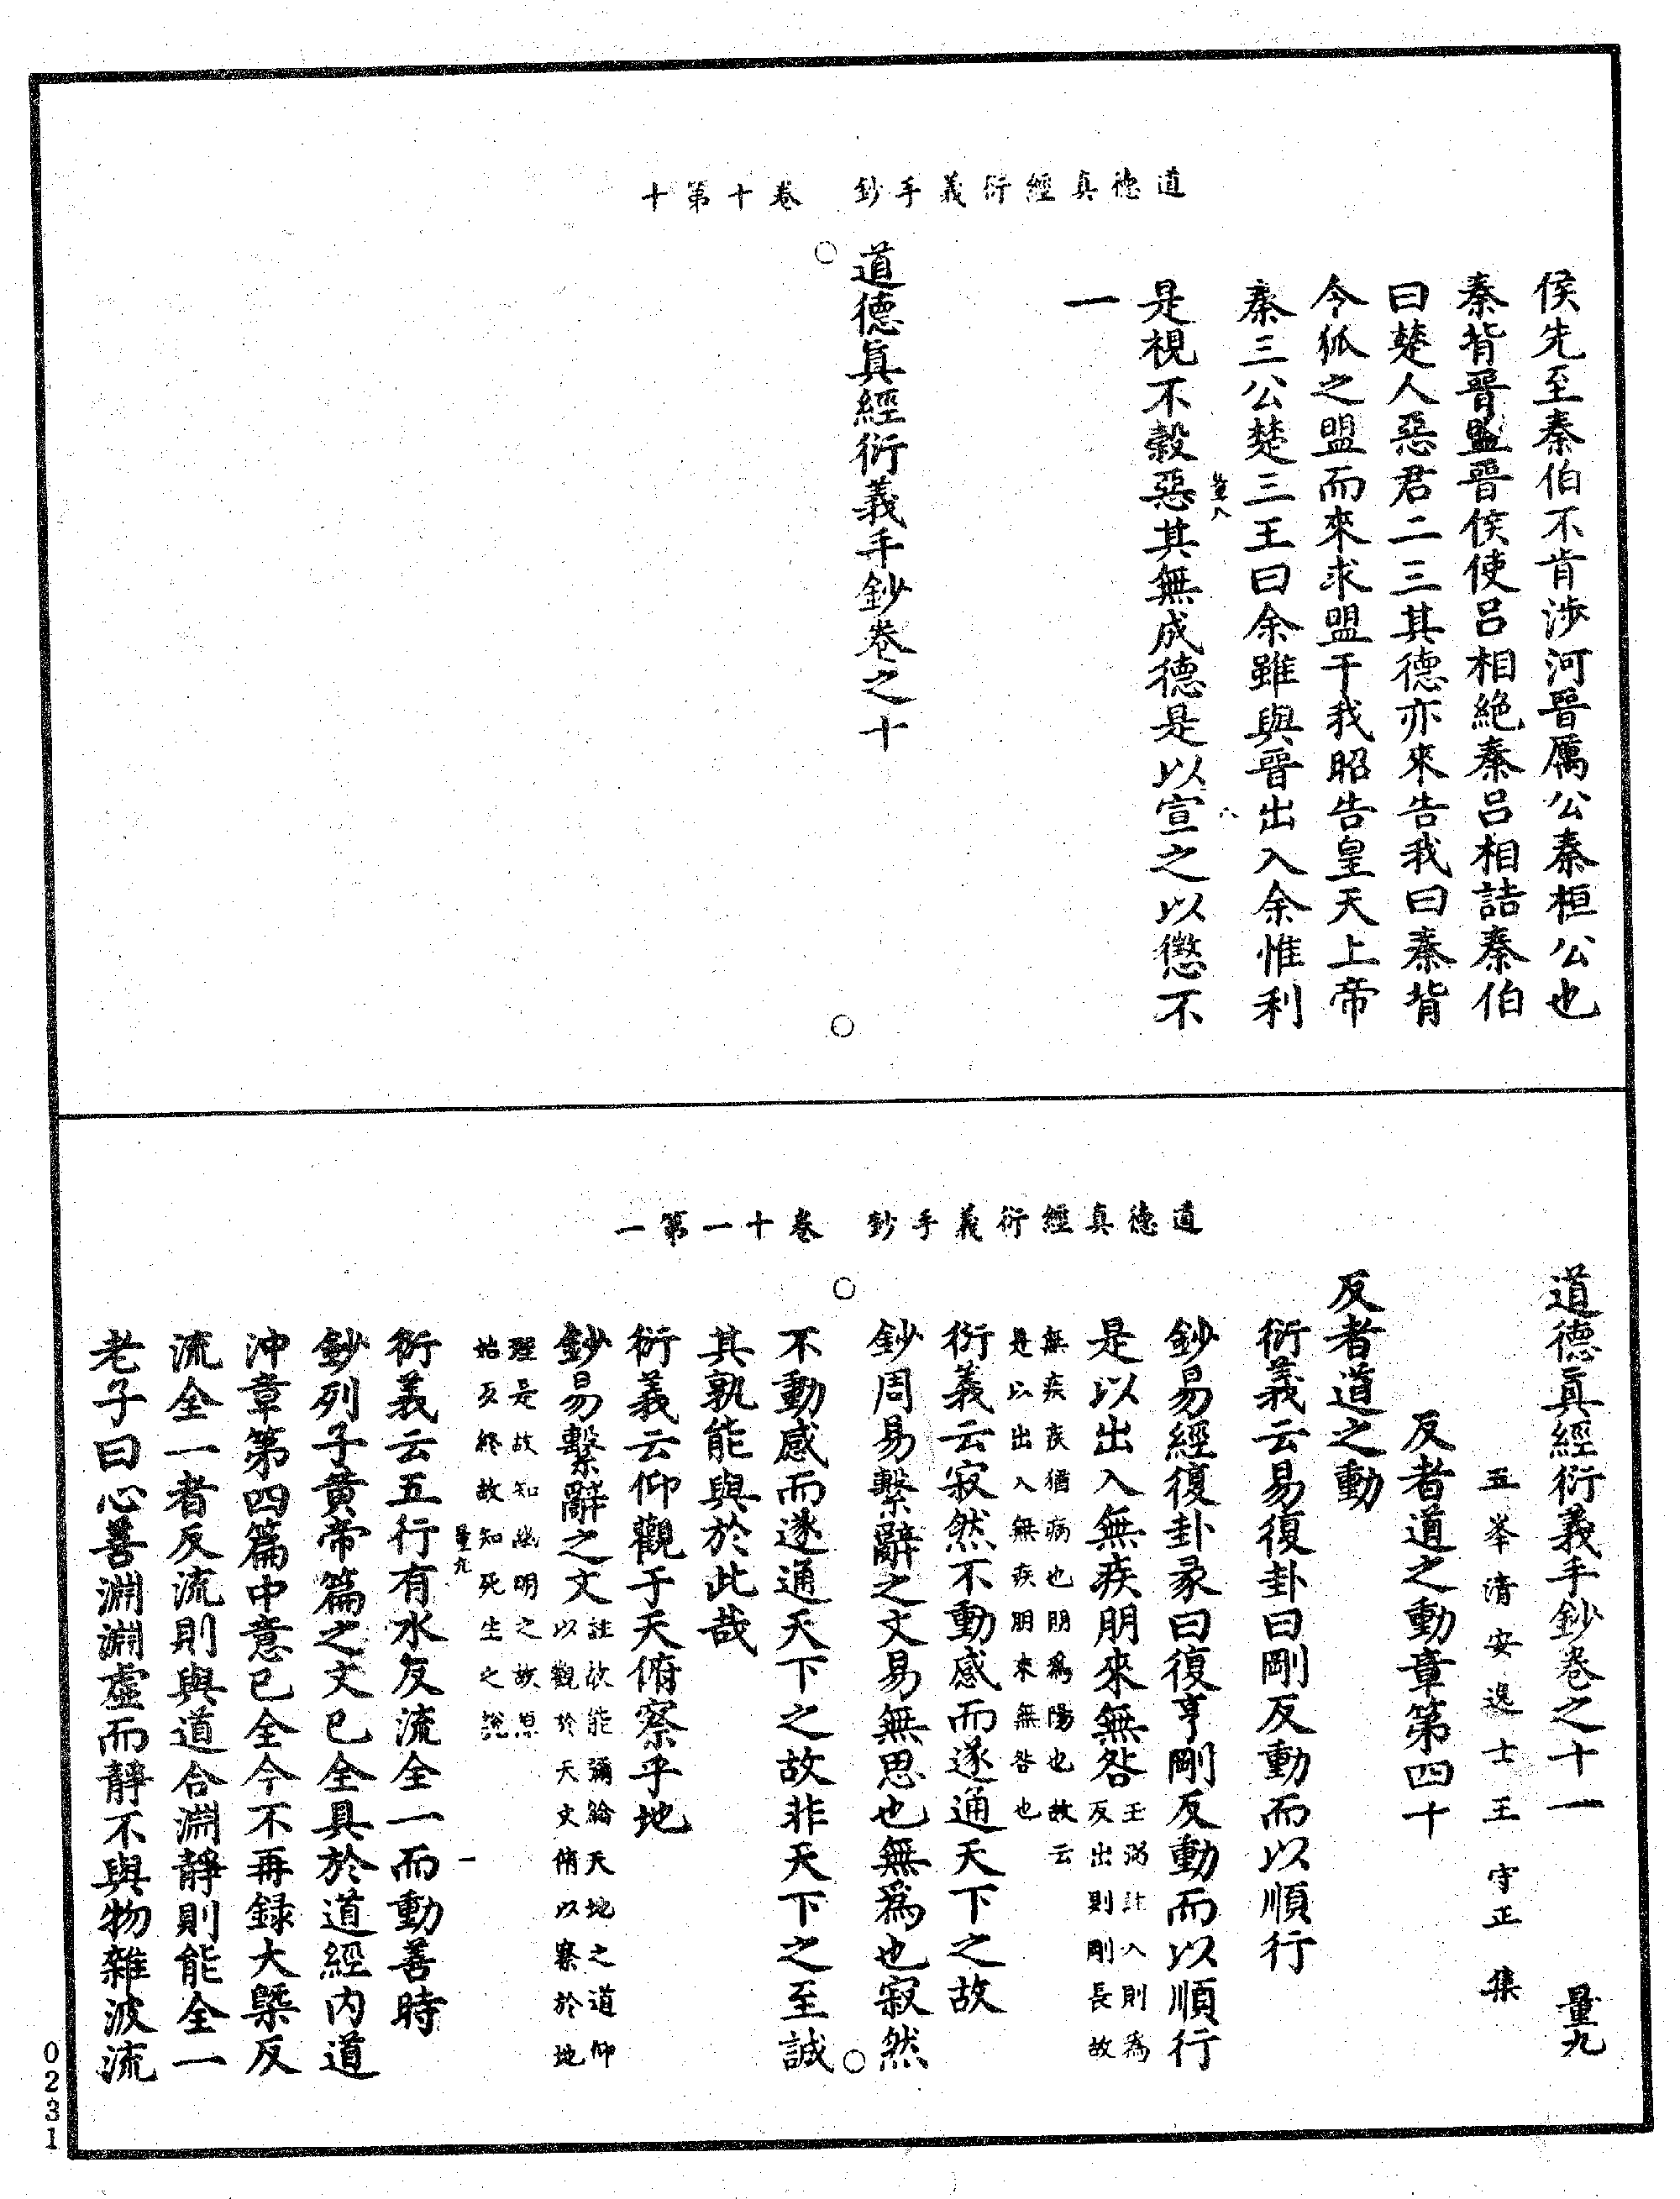 道德真經衍義手鈔　卷十第十
侯先至秦伯不肯渉河晉厲公秦桓公也
秦背晉盟晉侯使呂相絶秦呂相詰秦伯
曰楚人惡君二三其德亦來告我曰秦背
令狐之盟而來求盟于我昭告皇天上帝
秦三公楚三王曰余雖與晉出入余惟利
量八　八
是視不榖惡其無成德是以宣之以懲不
一
道德眞經衍義手鈔卷之十
道德真經衍義手鈔　卷十一第一
道德眞經衍義手鈔卷之十一　量九
五峯清安逸士王守正集
反者道之動章第四十
反者道之動
衍義云易復卦曰剛反動而以順行
鈔易經復卦彖曰復亨剛反動而以順行
是以出入無疾朋來無咎王弼註入則爲
反出則剛長故
無疾疾猶病也朋爲陽也故云
是以出入無疾朋來無咎也
衍義云寂然不動感而遂通天下之故
鈔周易繫辭之文易無思也無爲也寂然
不動感而遂通天下之故非天下之至誠
其孰能與於此哉
衍義云仰觀于天俯察乎地
鈔易繫辭之文註故能彌綸天地之道仰
以觀於天文俯以察於地
理是故知幽明之故原
始反終故知死生之說
量九　一
衍義云五行有水反流全一而動善時
鈔列子黄帝篇之文已全具於道經内道
沖章第四篇中意已全今不再録大槩反
流全一者反流則與道合淵靜則能全一
老子曰心善淵淵虛而靜不與物雜波流
0231